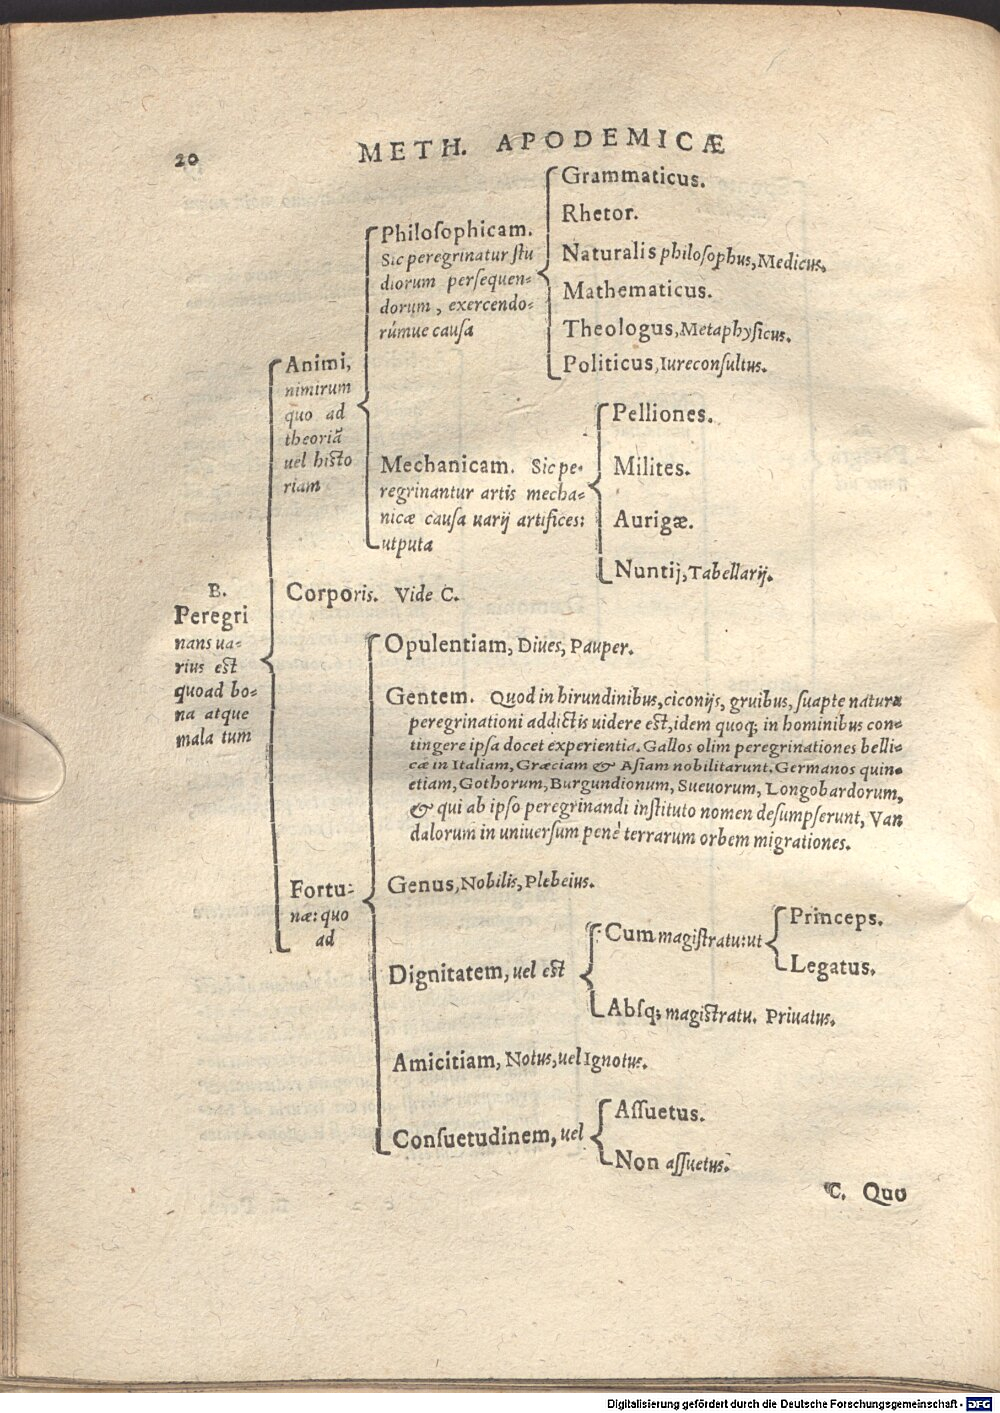 20
METH. APODEMICÆ
B.
Peregri
nans ua-
rius est
quoad bo-
na atque
mala tum
Animi,
nimirum
quo ad
theoriã
uel histo
riam
Philoſophicam.
Sic peregrinatur ſtu
diorum perſequen-
dorum, exercendo-
rúmue cauſa
Grammaticus.
Rhetor.
Naturalis philoſophus, Medicus.
Mathematicus.
Theologus, Metaphyſicus.
Politicus, Iureconſultus.
Mechanicam. Sic pe-
regrinantur artis mecha-
nicæ cauſa uarij artifices:
utputa
Pelliones.
Milites.
Aurigæ.
Nuntij, Tabellarij.
Corporis. Vide C.
Fortu-
næ: quo
ad
Opulentiam, Diues, Pauper.
Gentem. Quod in hirundinibus, ciconijs, gruibus, ſuapte natura
peregrinationi addictis uidere est, idem quoq; in hominibus con-
tingere ipſa docet experientia. Gallos olim peregrinationes belli-
cæ in Italiam, Græciam & Aſiam nobilitarunt. Germanos quin-
etiam, Gothorum, Burgundionum, Sueuorum, Longobardorum,
& qui ab ipſo peregrinandi inſtituto nomen deſumpſerunt, Van
dalorum in uniuerſum penè terrarum orbem migrationes.
Genus, Nobilis, Plebeius.
Dignitatem, uel est
Cum magiſtratu: ut
Princeps.
Legatus.
Abſq; magiſtratu. Priuatus.
Amicitiam, Notus, uel Ignotus.
Conſuetudinem, uel
Aſſuetus.
Non aſſuetus.
C. Quo
Digitalisierung gefördert durch die Deutsche Forschungsgemeinschaft - DFG